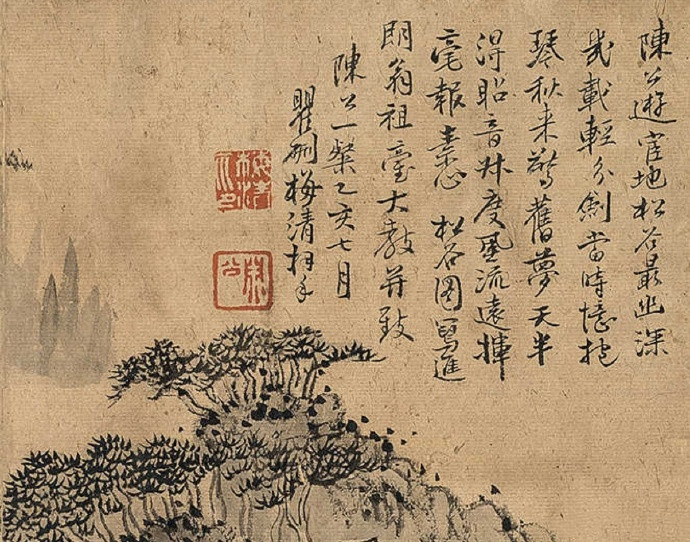 陳公遊宦地松谷最幽深
幾載輕分劍當時憶抱
琴秋来驚舊夢天半
得昭音叔度風流遠揮
毫報素心 松谷圖寫進
朗翁祖臺大教并致
陳公一粲乙亥七月
瞿硎梅清拜手